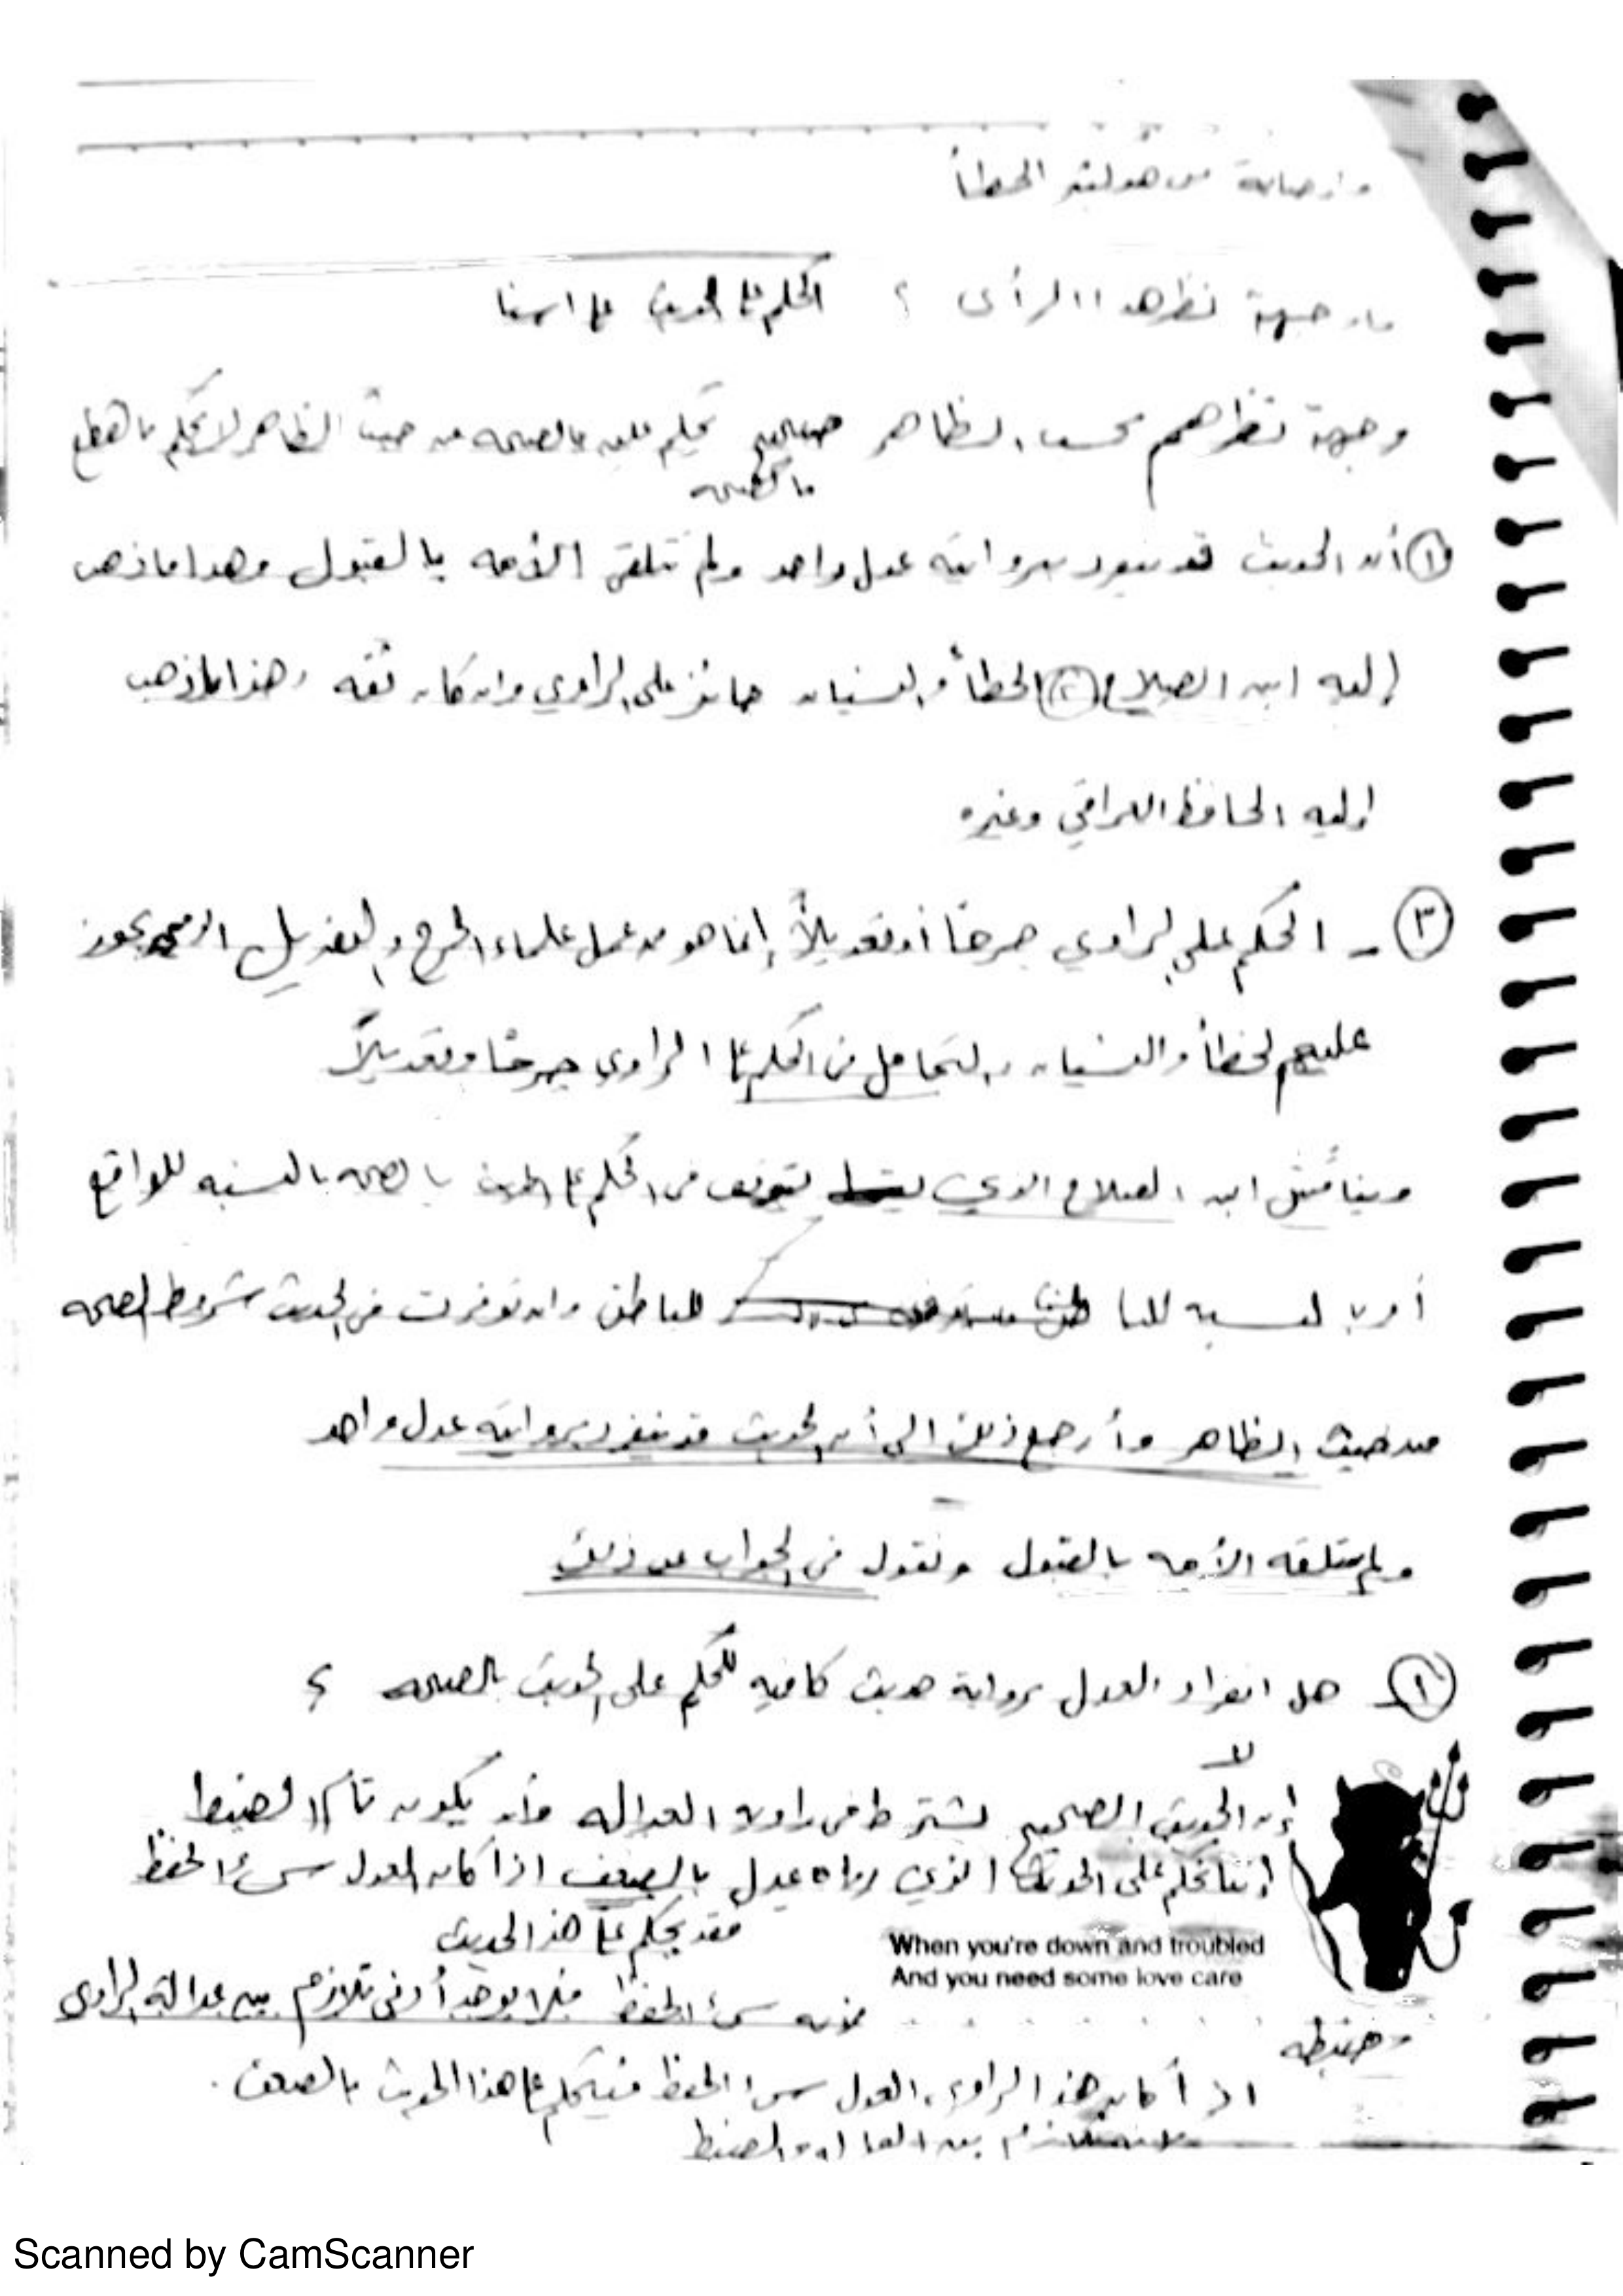 وإصابة من هو الخطأ
ما وجهة نظر هذا الرأي ؟ الحكم على الحديث على
وجهة نظرهم بحسب الظاهر صحيح نحكم عليه بالصحة من حيث الظاهر لا نحكم بالقطع
بالصحه
① أن الحديث قد ينفرد بروايته عدل واحد ولم تتلقى الأمه بالقبول وهذا ما ذهب
إليه ابن الصلاح ② الخطأ والنسيان جائز على الراوي وإن كان ثقه وهذا ما ذهب
إليه الحافظ العراقي وغيره
③ - الحكم على الراوي جرحًا أو تعديلاً إنما هو من عمل علماء الجرح والتعديل يجوز
عليهم الخطأ والنسيان والتحامل في الحكم على الراوي جرحًا وتعديلاً
ويناقش ابن الصلاح الذي يتوقف في الحكم على الحديث بالصحه بالنسبه للواقع
أو بالنسبه للباطن للباطن وإن توفرت في الحديث شروط الصحه
من حيث الظاهر وأرجع ذلك الى أن الحديث قد ينفرد بروايته عدل واحد
ولم تتلقه الأمه بالقبول ونقول في الجواب عن ذلك
① - هل انفراد العدل برواية حديث كافيه للحكم على الحديث بالصحه ؟
لا
إن الحديث الصحيح يشترط في راويه العداله وأن يكون تام الضبط
إننا نحكم على الحديث الذي رواه عدل بالضعف اذا كان العدل سيء الحفظ
فقد يحكم على هذا الحديث
When you're down and troubled
And you need some love care
لأنه سيء الحفظ فلا يوجد أدنى تلازم بين عدالة الراوي
وضبطه
اذا كان هذا الراوي العدل سيء الحفظ فيحكم على هذا الحديث بالضعف .
بين العداله والضبط
Scanned by CamScanner